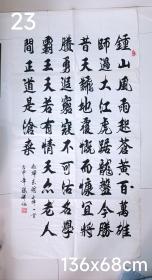 23
鍾山風雨起蒼黃百萬雄
師過大江虎踞龍盤今勝
昔天翻地覆慨而慷宜將
賸勇追窮寇不可沽名學
霸王天若有情天亦老人
間正道是滄桑
136x68cm